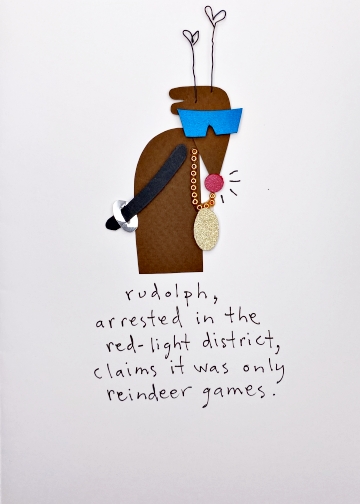 rudolph,
arrested in the
red-light district,
claims it was only
reindeer games.